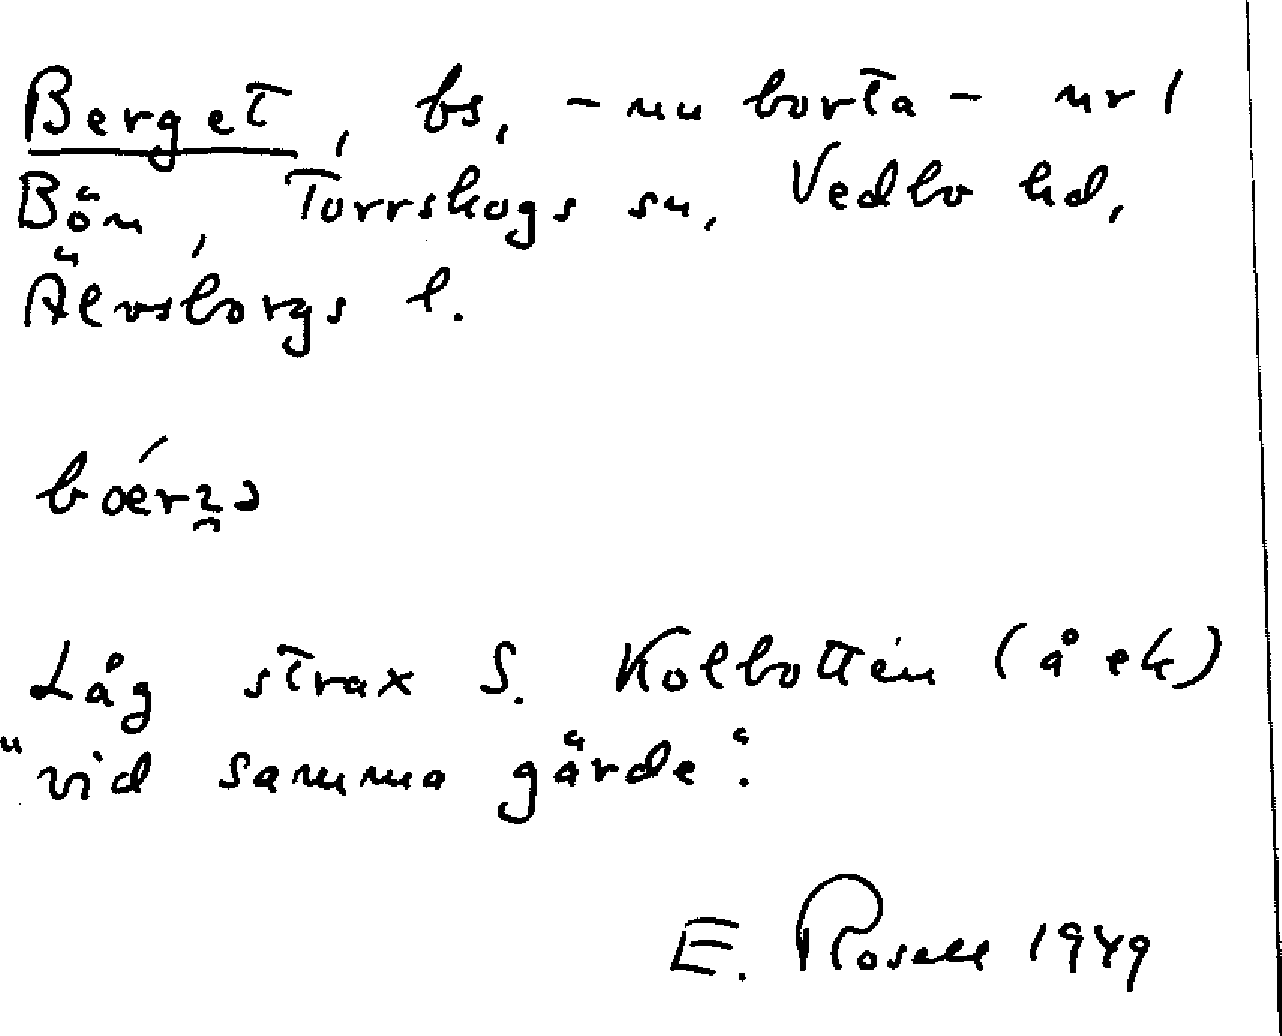 Berget, bs, - nu borta - nr 1
Bön, Torrskogs sn, Vedbo hd,
Älvsborgs l.
Låg strax S. Kolbotten (å ek)
"vid samma gärde".
E. Rosell 1949